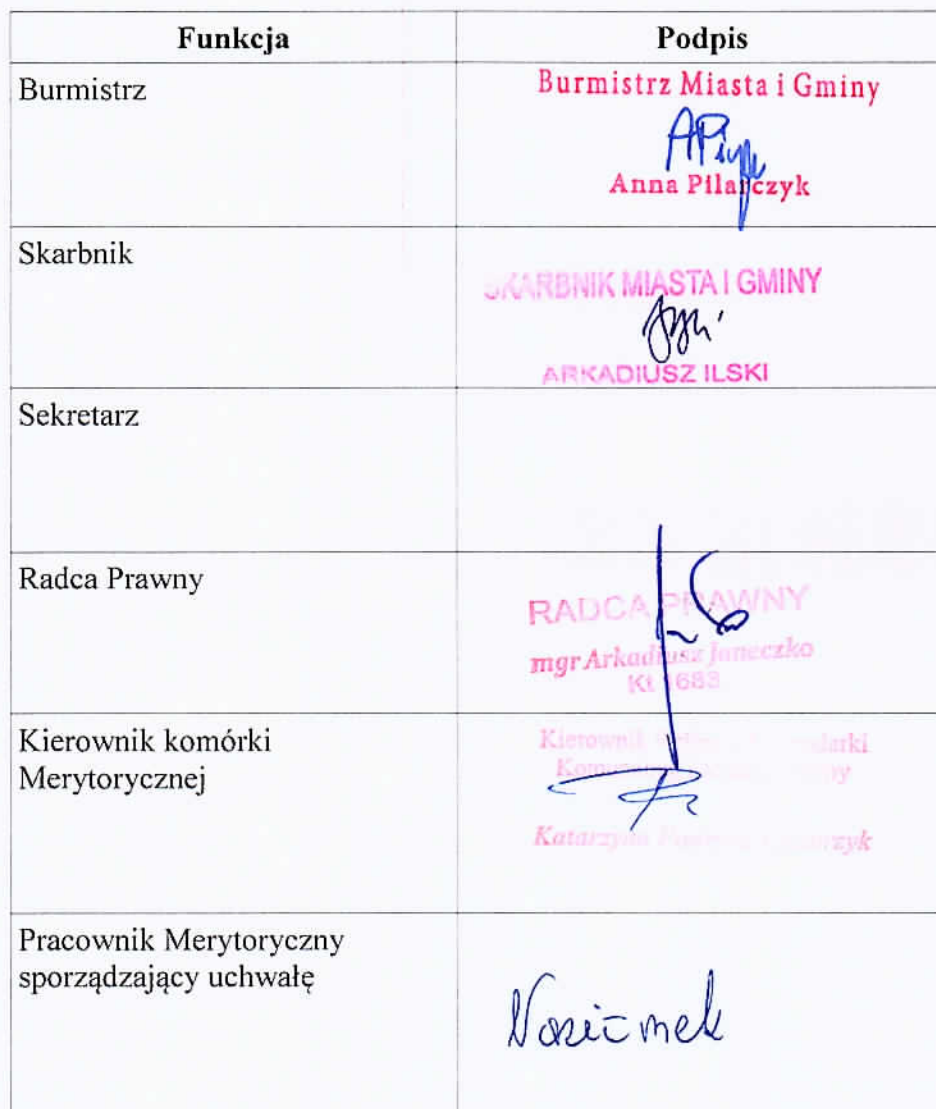 Funkcja Podpis
Burmistrz
Burmistrz Miasta i Gminy
Anna Pilarczyk
Skarbnik
SKARBNIK MIASTA I GMINY
ARKADIUSZ ILSKI
Sekretarz
Radca Prawny
RADCA PRAWNY
mgr Arkadiusz Janeczko
Kierownik komórki
Merytorycznej
Kierownik
Katarzyna
Pracownik Merytoryczny
sporządzający uchwałę